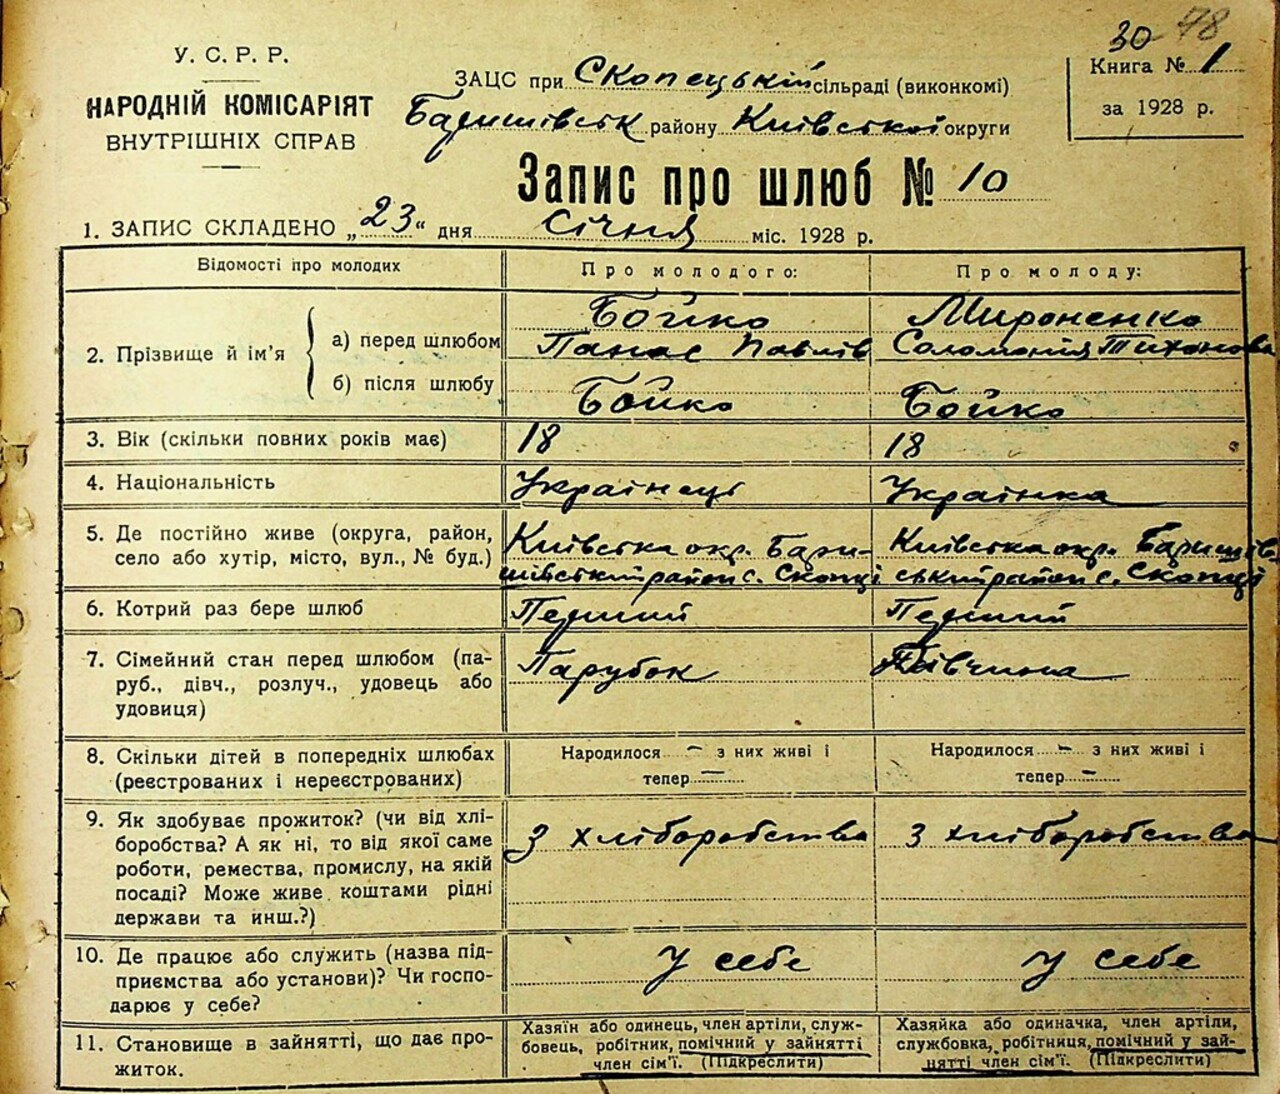 30 78
У. С. Р. Р.
НАРОДНІЙ КОМІСАРІЯТ
ВНУТРІШНІХ СПРАВ
ЗАЦС при Скопецькій сільраді (виконкомі)
Баришівськ району Київської округи
Книга № 1
за 1928 р.
Запис про шлюб № 10
1. ЗАПИС СКЛАДЕНО „23" дня Січня міс. 1928 р.
Відомості про молодих
Про молодого:
Про молоду:
2. Прізвище й ім'я
а) перед шлюбом
Бойко
Панас Павлів
Мироненко
Соломонія Тиханова
б) після шлюбу
Бойко
Бойко
3. Вік (скільки повних років має)
18
18
4. Національність
Українець
Українка
5. Де постійно живе (округа, район,
село або хутір, місто, вул., № буд.)
Київська окр. Бари-
шівський район с. Скопці
Київська окр. Баришів
ський район с. Скопці
6. Котрий раз бере шлюб
Перший
Перший
7. Сімейний стан перед шлюбом (па-
руб., дівч., розлуч., удовець або
удовиця)
Парубок
Дівчина
8. Скільки дітей в попередніх шлюбах
(реєстрованих і нереєстрованих)
Народилося — з них живі і
тепер —
Народилося — з них живі і
тепер —
9. Як здобуває прожиток? (чи від хлі-
боробства? А як ні, то від якої саме
роботи, ремества, промислу, на якій
посаді? Може живе коштами рідні
держави та инш.?)
З хліборобства
З хліборобства
10. Де працює або служить (назва під-
приємства або установи)? Чи госпо-
дарює у себе?
У себе
У себе
11. Становище в зайнятті, що дає про-
житок.
Хазяїн або одинець, член артіли, служ-
бовець, робітник, помічний у зайнятті
член сім'ї. (Підкреслити)
Хазяйка або одиначка, член артіли,
службовка, робітниця, помічний у зай-
нятті член сім'ї. (Підкреслити)